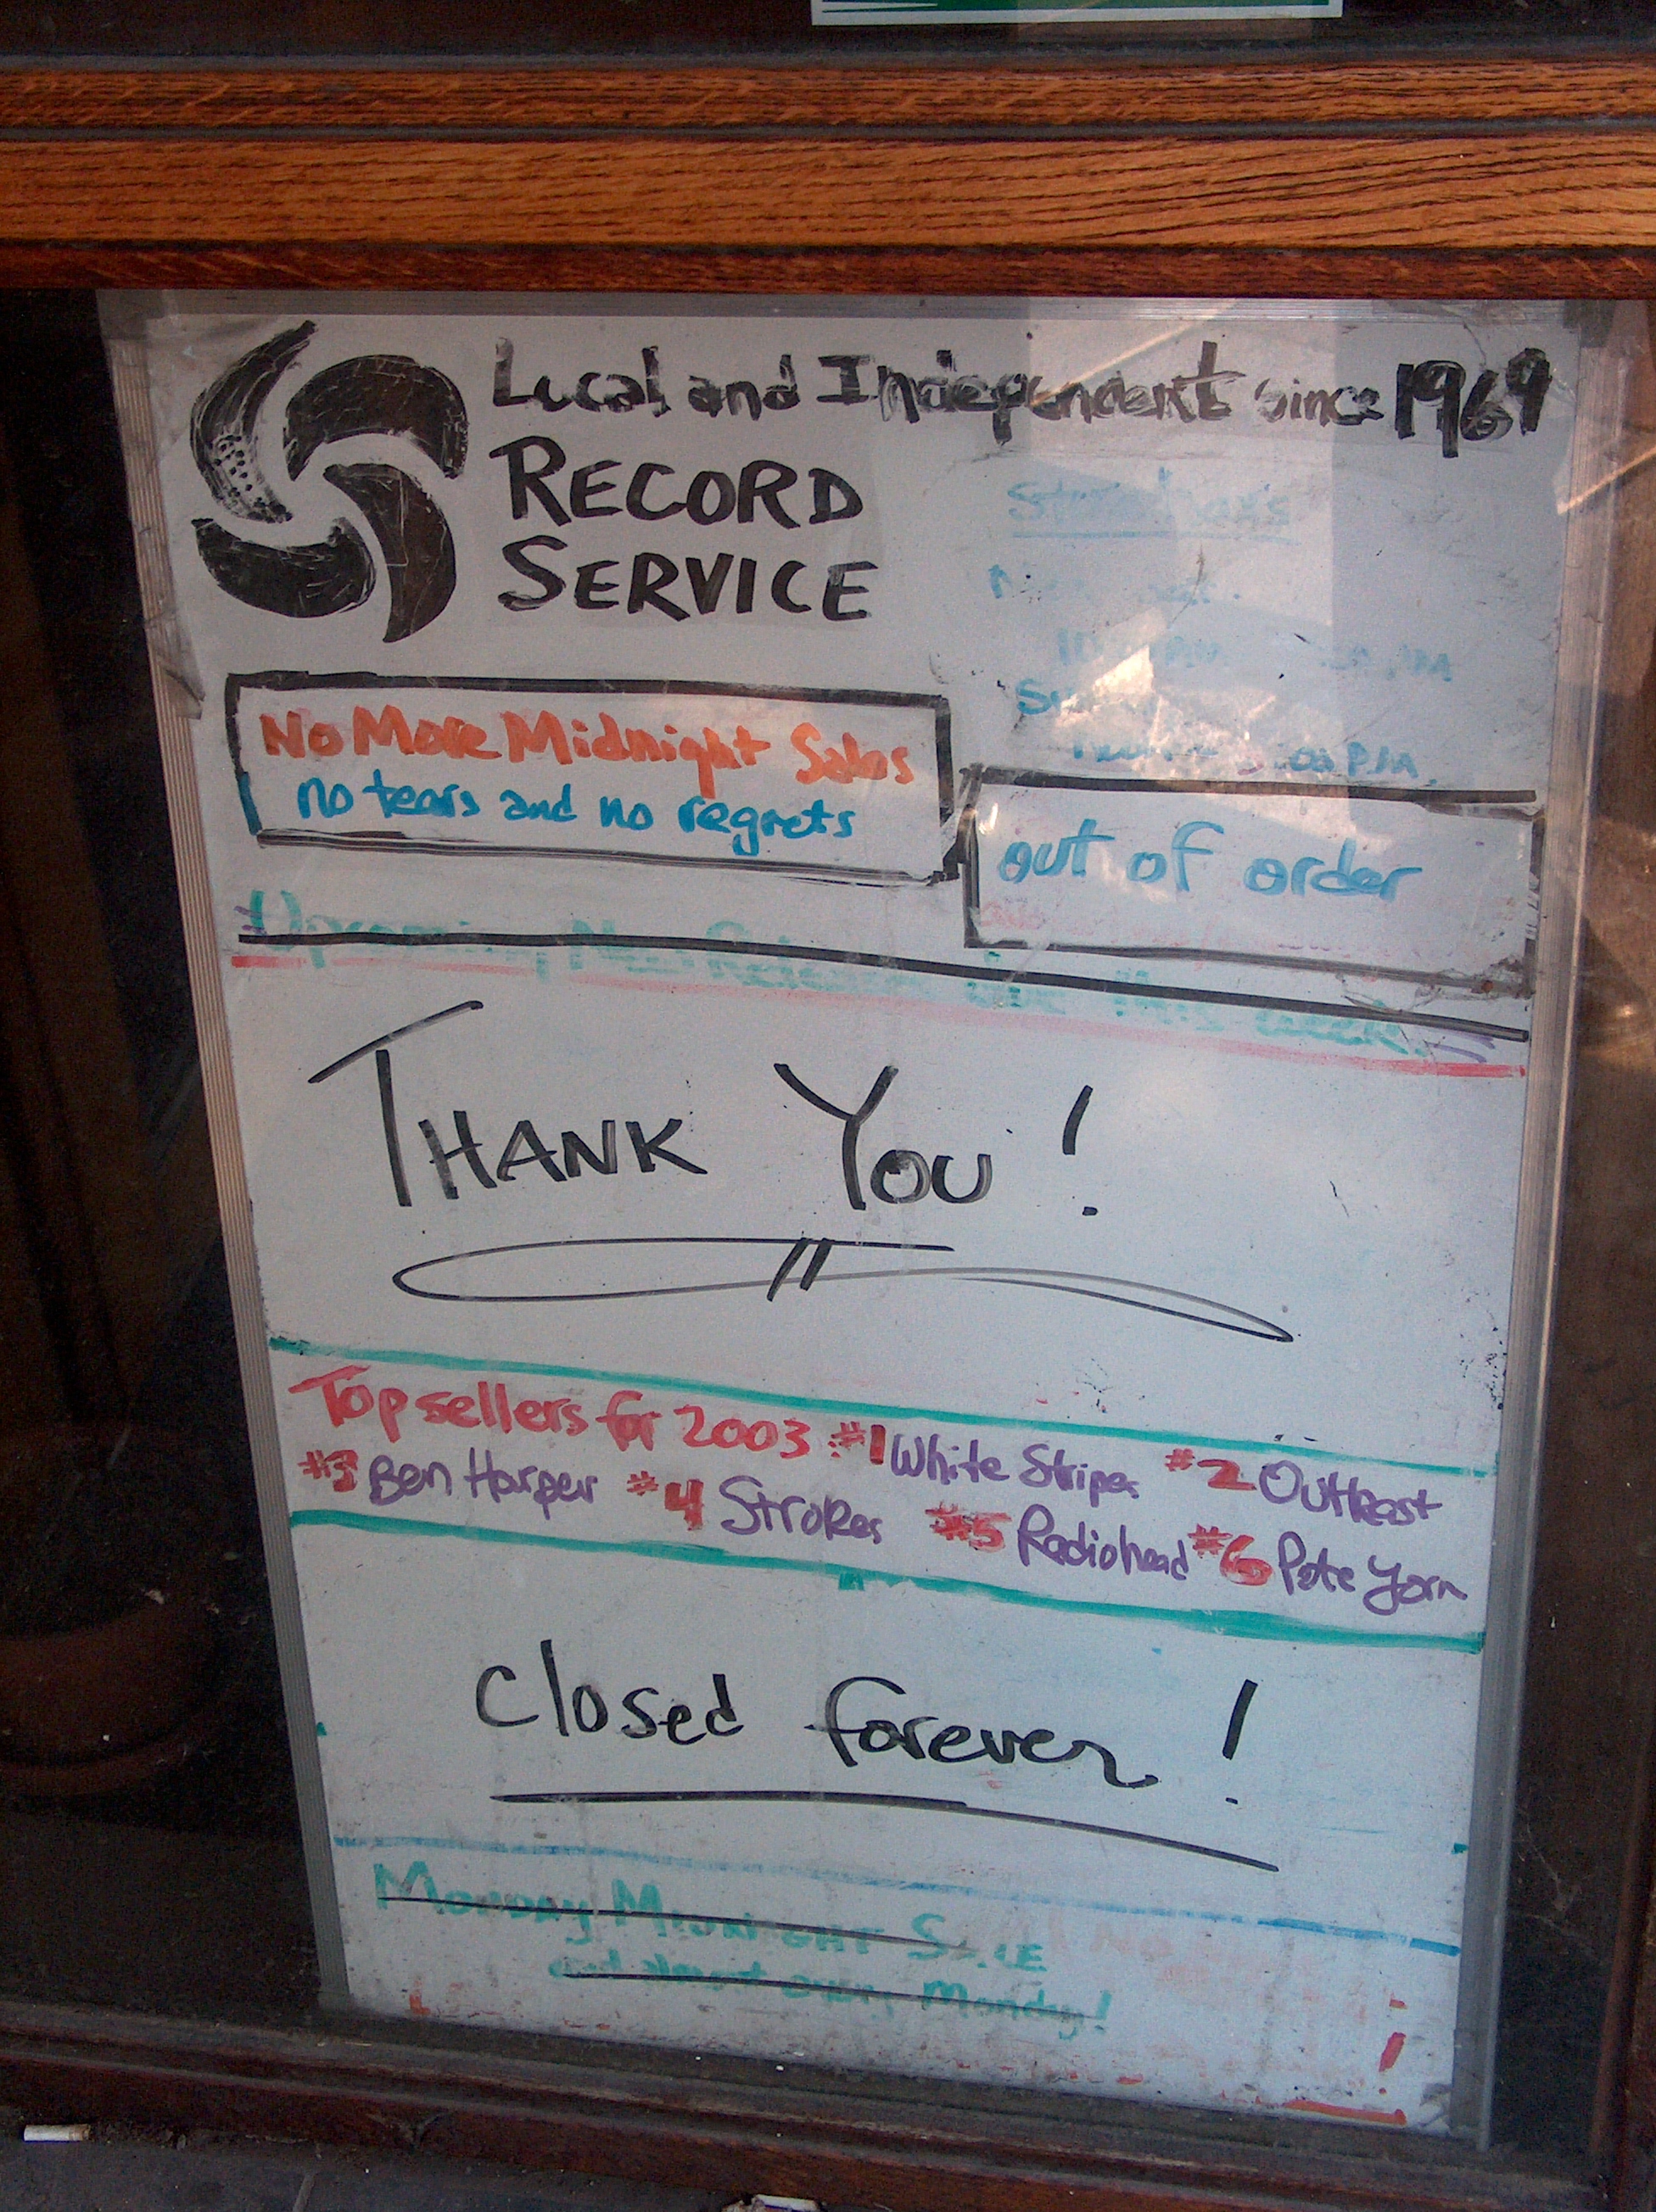 Local and Independent since 1969
RECORD
SERVICE
Store Hours
No More Midnight Sales
no tears and no regrets
out of order
Upcoming New Releases this week
THANK YOU!
Top sellers for 2003 #1 White Stripes #2 Outkast
#3 Ben Harper #4 Strokes #5 Radiohead #6 Pete Yorn
Closed forever!
MONDAY MIDNIGHT SALE
and almost every Monday!